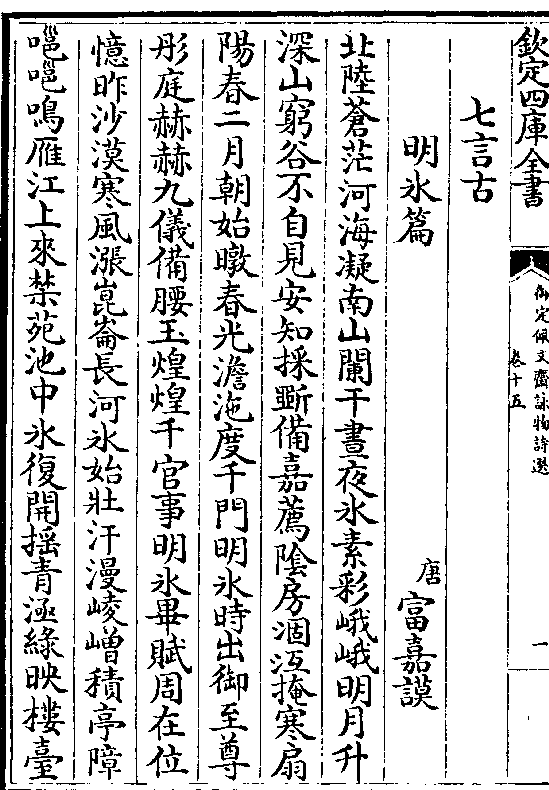 欽定四庫全書
御定佩文齋詠物詩選
卷十五
一
七言古
明氷篇
唐 富嘉謨
北陸蒼茫河海凝南山闌干晝夜氷素彩峨峨明月升
深山窮谷不自見安知採斵備嘉薦陰房涸沍掩寒扇
陽春二月朝始暾春光澹沲度千門明氷時出御至尊
彤庭赫赫九儀備腰玉煌煌千官事明氷畢賦周在位
憶昨沙漠寒風漲崑崙長河氷始壯汗漫崚嶒積亭障
嗈嗈鳴雁江上來禁苑池中氷復開揺青涵緑映樓臺